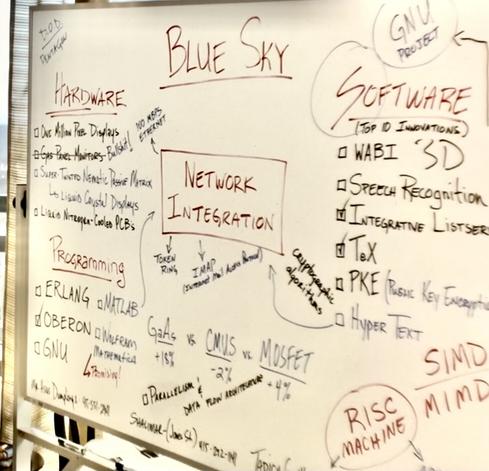 D.O.D
PENTAGON
BLUE SKY
GNU
PROJECT
HARDWARE
ONE MILLION PIXEL DISPLAYS
GAS-PANEL MONITORS - Bullshit!
SUPER-TWISTED NEMATIC PASSIVE MATRIX
LIQUID CRYSTAL DISPLAYS
LIQUID NITROGEN-COOLED PCB's
100 MBPS
ETHERNET
NETWORK
INTEGRATION
TOKEN
RING
IMAP
(INTERNET MAIL ACCESS PROTOCOL)
CRYPTOGRAPHIC
ALGORITHMS
SOFTWARE
(TOP 10 INNOVATIONS)
WABI 3D
SPEECH RECOGNITION
INTEGRATIVE LISTSER
TEX
PKE (PUBLIC KEY ENCRYPTIO
HYPER TEXT
PROGRAMMING
ERLANG
MATLAB
OBERON
WOLFRAM
MATHEMATICA
GNU
PROMISING!
GaAs vs. CMUS vs. MOSFET
+18% -2% +4%
PARALLELISM &
DATA FLOW ARCHITECTURE
SIMD
MIMD
RISC
MACHINE